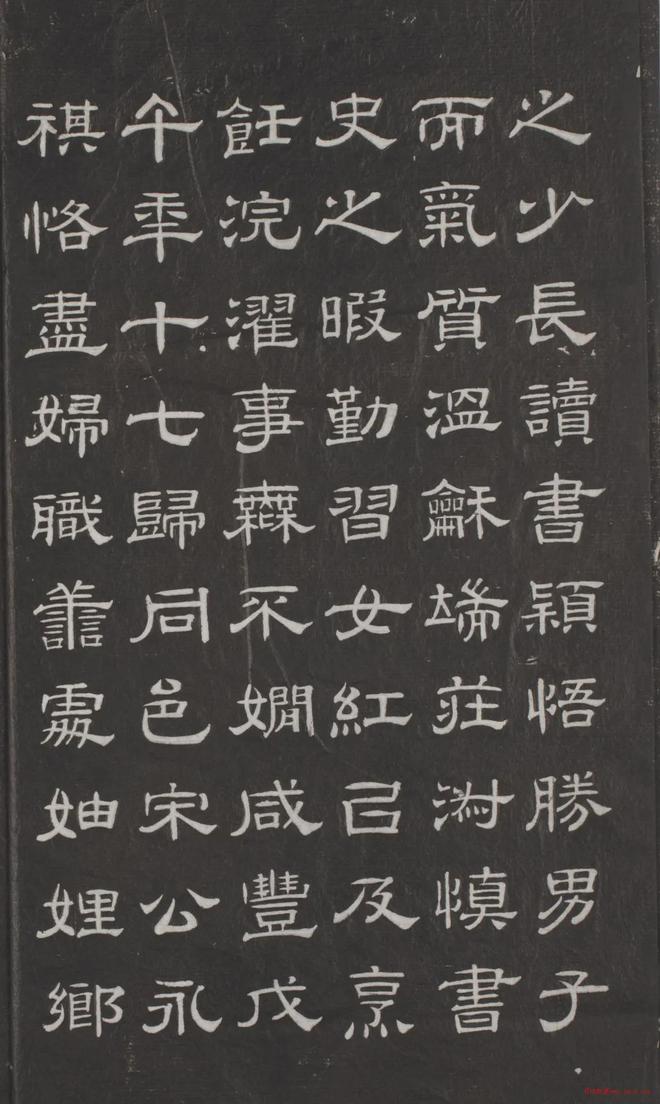 之少長讀書穎悟勝男子
而氣質溫龢端莊淑慎書
史之暇勤習女紅己及烹
飪浣濯事無不嫺咸豐戊
午年十七歸同邑宋公永
祺恪盡婦職譱處妯娌鄉